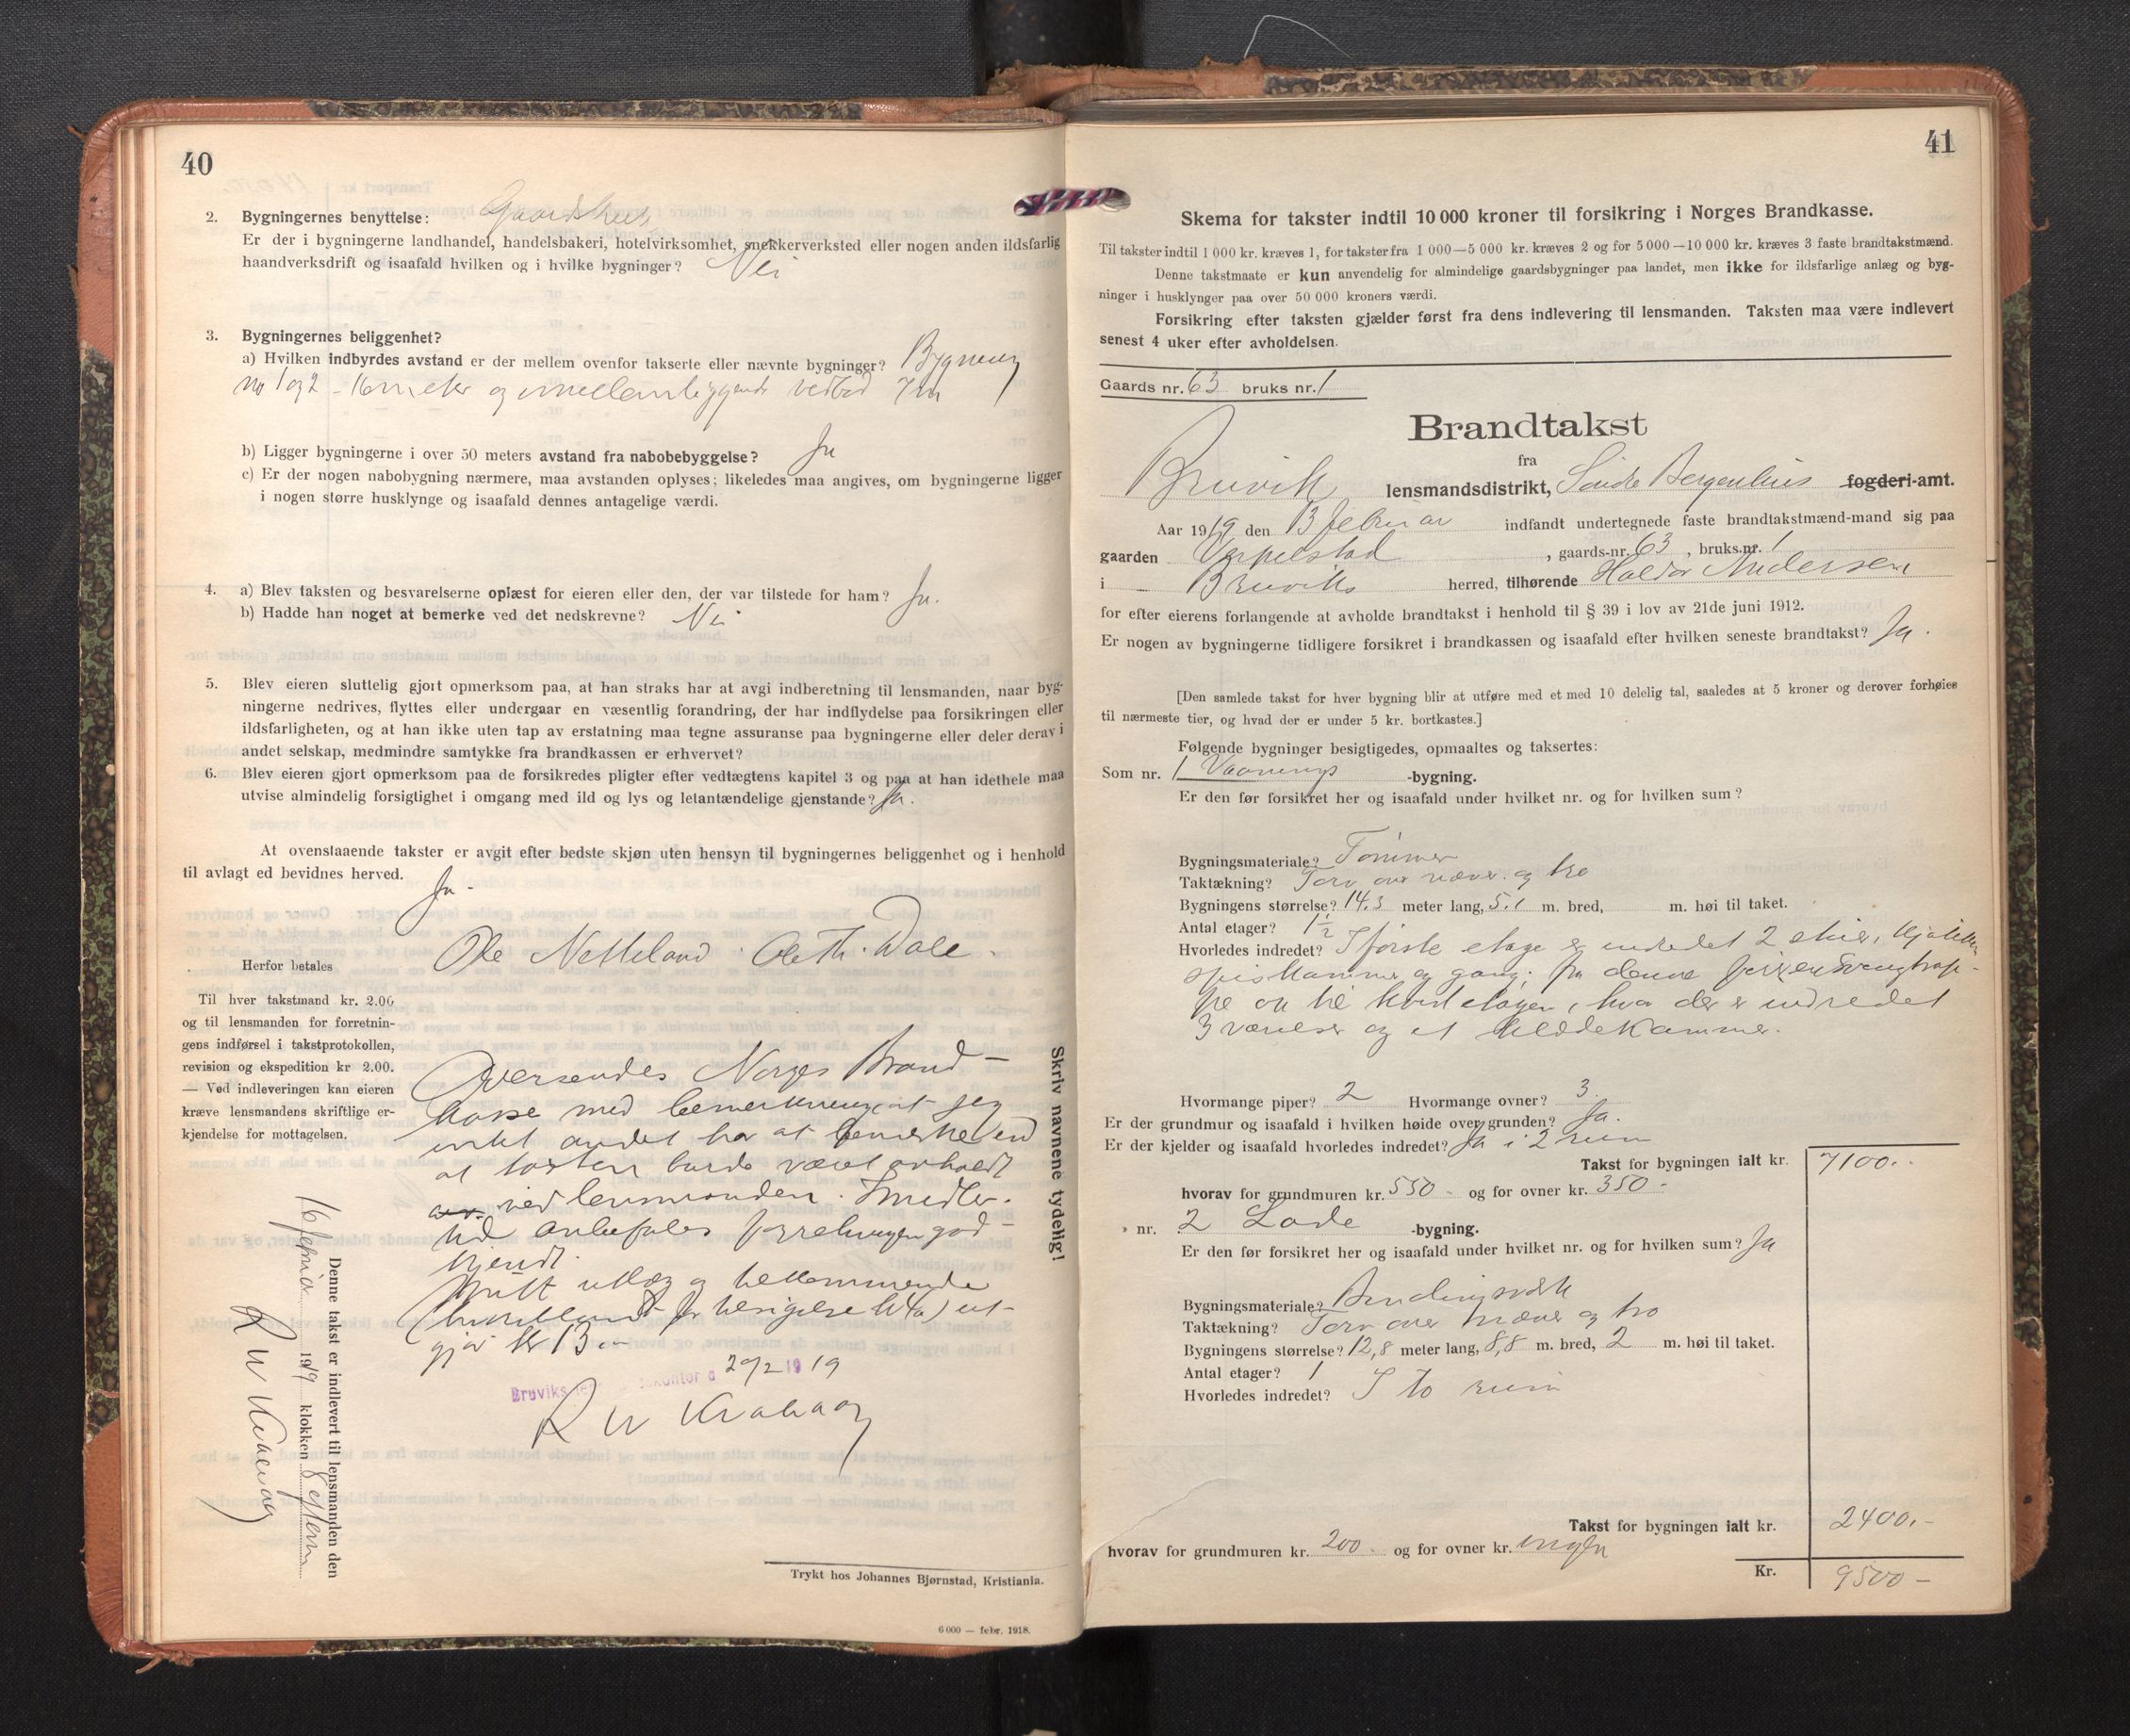 40
2. Bygningernes benyttelse: Gaardsbruk
Er der i bygningerne landhandel, handelsbakeri, hotelvirksomhet, snekkerverksted eller nogen anden ildsfarlig
haandverksdrift og isaafald hvilken og i hvilke bygninger? Nei
3. Bygningernes beliggenhet?
a) Hvilken indbyrdes avstand er der mellem ovenfor takserte eller nævnte bygninger? Bygning
no 1 og 2 - 16 meter og mellemliggende vedbod 7 m
b) Ligger bygningerne i over 50 meters avstand fra nabobebyggelse? Ja
c) Er der nogen nabobygning nærmere, maa avstanden oplyses; likeledes maa angives, om bygningerne ligger
i nogen større husklynge og isaafald dennes antagelige værdi.
4. a) Blev taksten og besvarelserne oplæst for eieren eller den, der var tilstede for ham? Ja.
b) Hadde han noget at bemerke ved det nedskrevne? Nei
5. Blev eieren sluttelig gjort opmerksom paa, at han straks har at avgi indberetning til lensmanden, naar byg-
ningerne nedrives, flyttes eller undergaar en væsentlig forandring, der har indflydelse paa forsikringen eller
ildsfarligheten, og at han ikke uten tap av erstatning maa tegne assuranse paa bygningerne eller deler derav i
andet selskap, medmindre samtykke fra brandkassen er erhvervet?
6. Blev eieren gjort opmerksom paa de forsikredes pligter efter vedtægtens kapitel 3 og paa at han idethele maa
utvise almindelig forsigtighet i omgang med ild og lys og letantændelige gjenstande? Ja.
At ovenstaaende takster er avgit efter bedste skjøn uten hensyn til bygningernes beliggenhet og i henhold
til avlagt ed bevidnes herved.
Ja-
Ole Netteland. Ole Th. Dale.
Herfor betales
Til hver takstmand kr. 2.00
og til lensmanden for forretnin-
gens indførsel i takstprotokollen,
revision og ekspedition kr 2.00.
— Ved indleveringen kan eieren
kræve lensmandens skriftlige er-
kjendelse for mottagelsen.
Oversendes Norges Brand-
kasse med bemerkning at jeg
intet andet har at bemerke end
at taksten burde været avholdt
ved lensmanden. Imidler-
tid anbefales forretningen god-
kjendt.
utlæg og
for besigelse ut-
gjør kr 13
Bruviks 20/2 1919
R W Kvahaug
Skriv navnene tydelig!
Denne takst er indlevert til lensmanden den
16 februar 1919 klokken 8 efterm
R W Kvahaug
Trykt hos Johannes Bjørnstad, Kristiania.
6 000 — febr. 1918.
41
Skema for takster indtil 10 000 kroner til forsikring i Norges Brandkasse.
Til takster indtil 1 000 kr. kræves 1, for takster fra 1 000—5 000 kr. kræves 2 og for 5 000—10 000 kr. kræves 3 faste brandtakstmænd.
Denne takstmaate er kun anvendelig for almindelige gaardsbygninger paa landet, men ikke for ildsfarlige anlæg og byg-
ninger i husklynger paa over 50 000 kroners værdi.
Forsikring efter taksten gjælder først fra dens indlevering til lensmanden. Taksten maa være indlevert
senest 4 uker efter avholdelsen.
Gaards nr. 63 bruks nr. 1
Brandtakst
fra
Bruvik lensmandsdistrikt, Søndre Bergenhus fogderi-amt.
Aar 1919 den 13 februar indfandt undertegnede faste brandtakstmænd-mand sig paa
gaarden Verpelstad, gaards-nr. 63, bruks.nr. 1
i Bruviks herred, tilhørende Haldor Andersen
for efter eierens forlangende at avholde brandtakst i henhold til § 39 i lov av 21de juni 1912.
Er nogen av bygningerne tidligere forsikret i brandkassen og isaafald efter hvilken seneste brandtakst? Ja.
[Den samlede takst for hver bygning blir at utføre med et med 10 delelig tal, saaledes at 5 kroner og derover forhøies
til nærmeste tier, og hvad der er under 5 kr. bortkastes.]
Følgende bygninger besigtigedes, opmaaltes og taksertes:
Som nr. 1 Vaanings -bygning.
Er den før forsikret her og isaafald under hvilket nr. og for hvilken sum?
Bygningsmateriale? Tømmer
Taktækning? Torv over næver og tro
Bygningens størrelse? 14.3 meter lang, 5.1 m. bred, m. høi til taket.
Antal etager? 1½
Hvorledes indredet? I første etage er indredet 2 stuer, kjøkken
spiskammer og gang. fra denne fører en svingtrap-
pe op til kvistetagen, hvor der er indredet
3 værelser og et klædekammer.
Hvormange piper? 2 Hvormange ovner? 3.
Er der grundmur og isaafald i hvilken høide over grunden? Ja.
Er der kjelder og isaafald hvorledes indredet? Ja i 2 rum
Takst for bygningen ialt kr. 7100.-
hvorav for grundmuren kr. 550- og for ovner kr. 350-
» nr. 2 Lade -bygning.
Er den før forsikret her og isaafald under hvilket nr. og for hvilken sum? Ja
Bygningsmateriale? Bindingsverk
Taktækning? Torv over næver og tro
Bygningens størrelse? 12,8 meter lang, 8,8 m. bred, 2 m. høi til taket.
Antal etager? 1
Hvorledes indredet? I to rum
Takst for bygningen ialt kr. 2400.-
hvorav for grundmuren kr. 200- og for ovner kr. ingen
Kr. 9500-